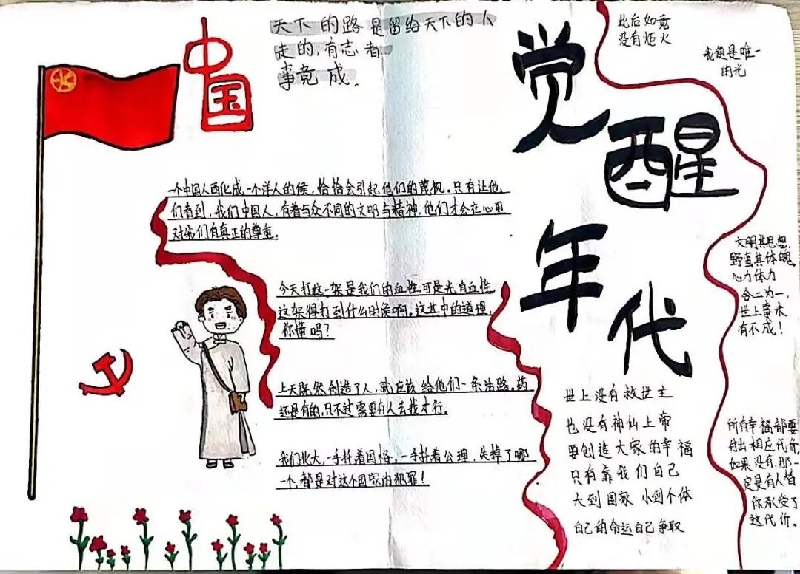 中国
天下的路是留给天下的人
走的，有志者
事竟成。
觉醒年代
此后如竟
没有炬火
我便是唯一
的光
一个中国人西化成一个洋人的候，恰恰会引起他们的蔑视。只有让他
们看到，我们中国人，有着与众不同的文明与精神，他们才会在心里
对我们有真正的尊重。
今天打这一架是我们的血性，可是光有血性
这架得打到什么时候啊，这其中的道理
你懂吗？
上天既然创造了人，就应该给他们一条活路，药
还是有的，只不过需要有人去找才行。
我们北大，一手扶着因悟，一手扶着公理，失掉了哪
一个，都是对这个国家的犯罪！
文明其思想，
野蛮其体魄，
心力体力
合二为一，
世上事未
有不成！
世上没有救世主
也没有神仙上帝
要创造大家的幸福
只有靠我们自己
大到国家 小到个体
自己的命运自己争取
所有幸福都要
付出相应代价，
如果没有，那一
定是有人替
你承受了
这代价。